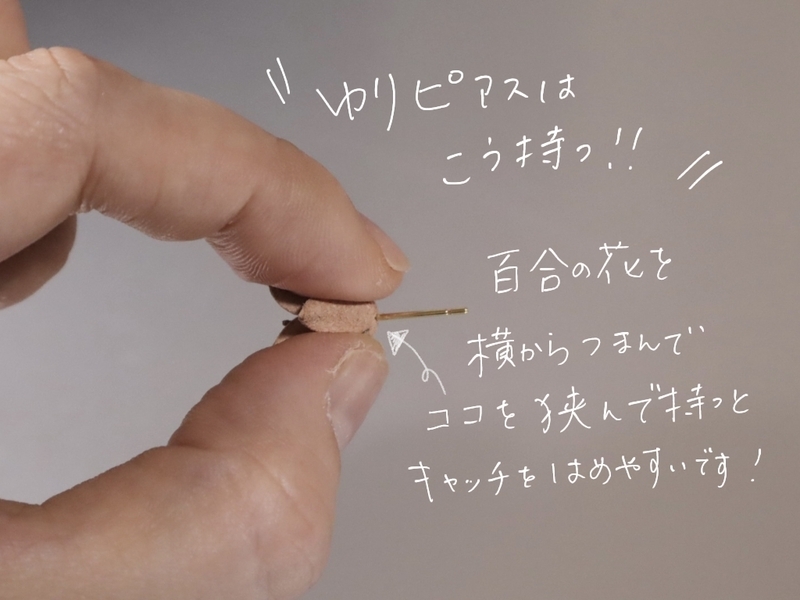 ゆりピアスは
こう持つ!!
百合の花を
横からつまんで
ココを挟んで持つと
キャッチをはめやすいです!